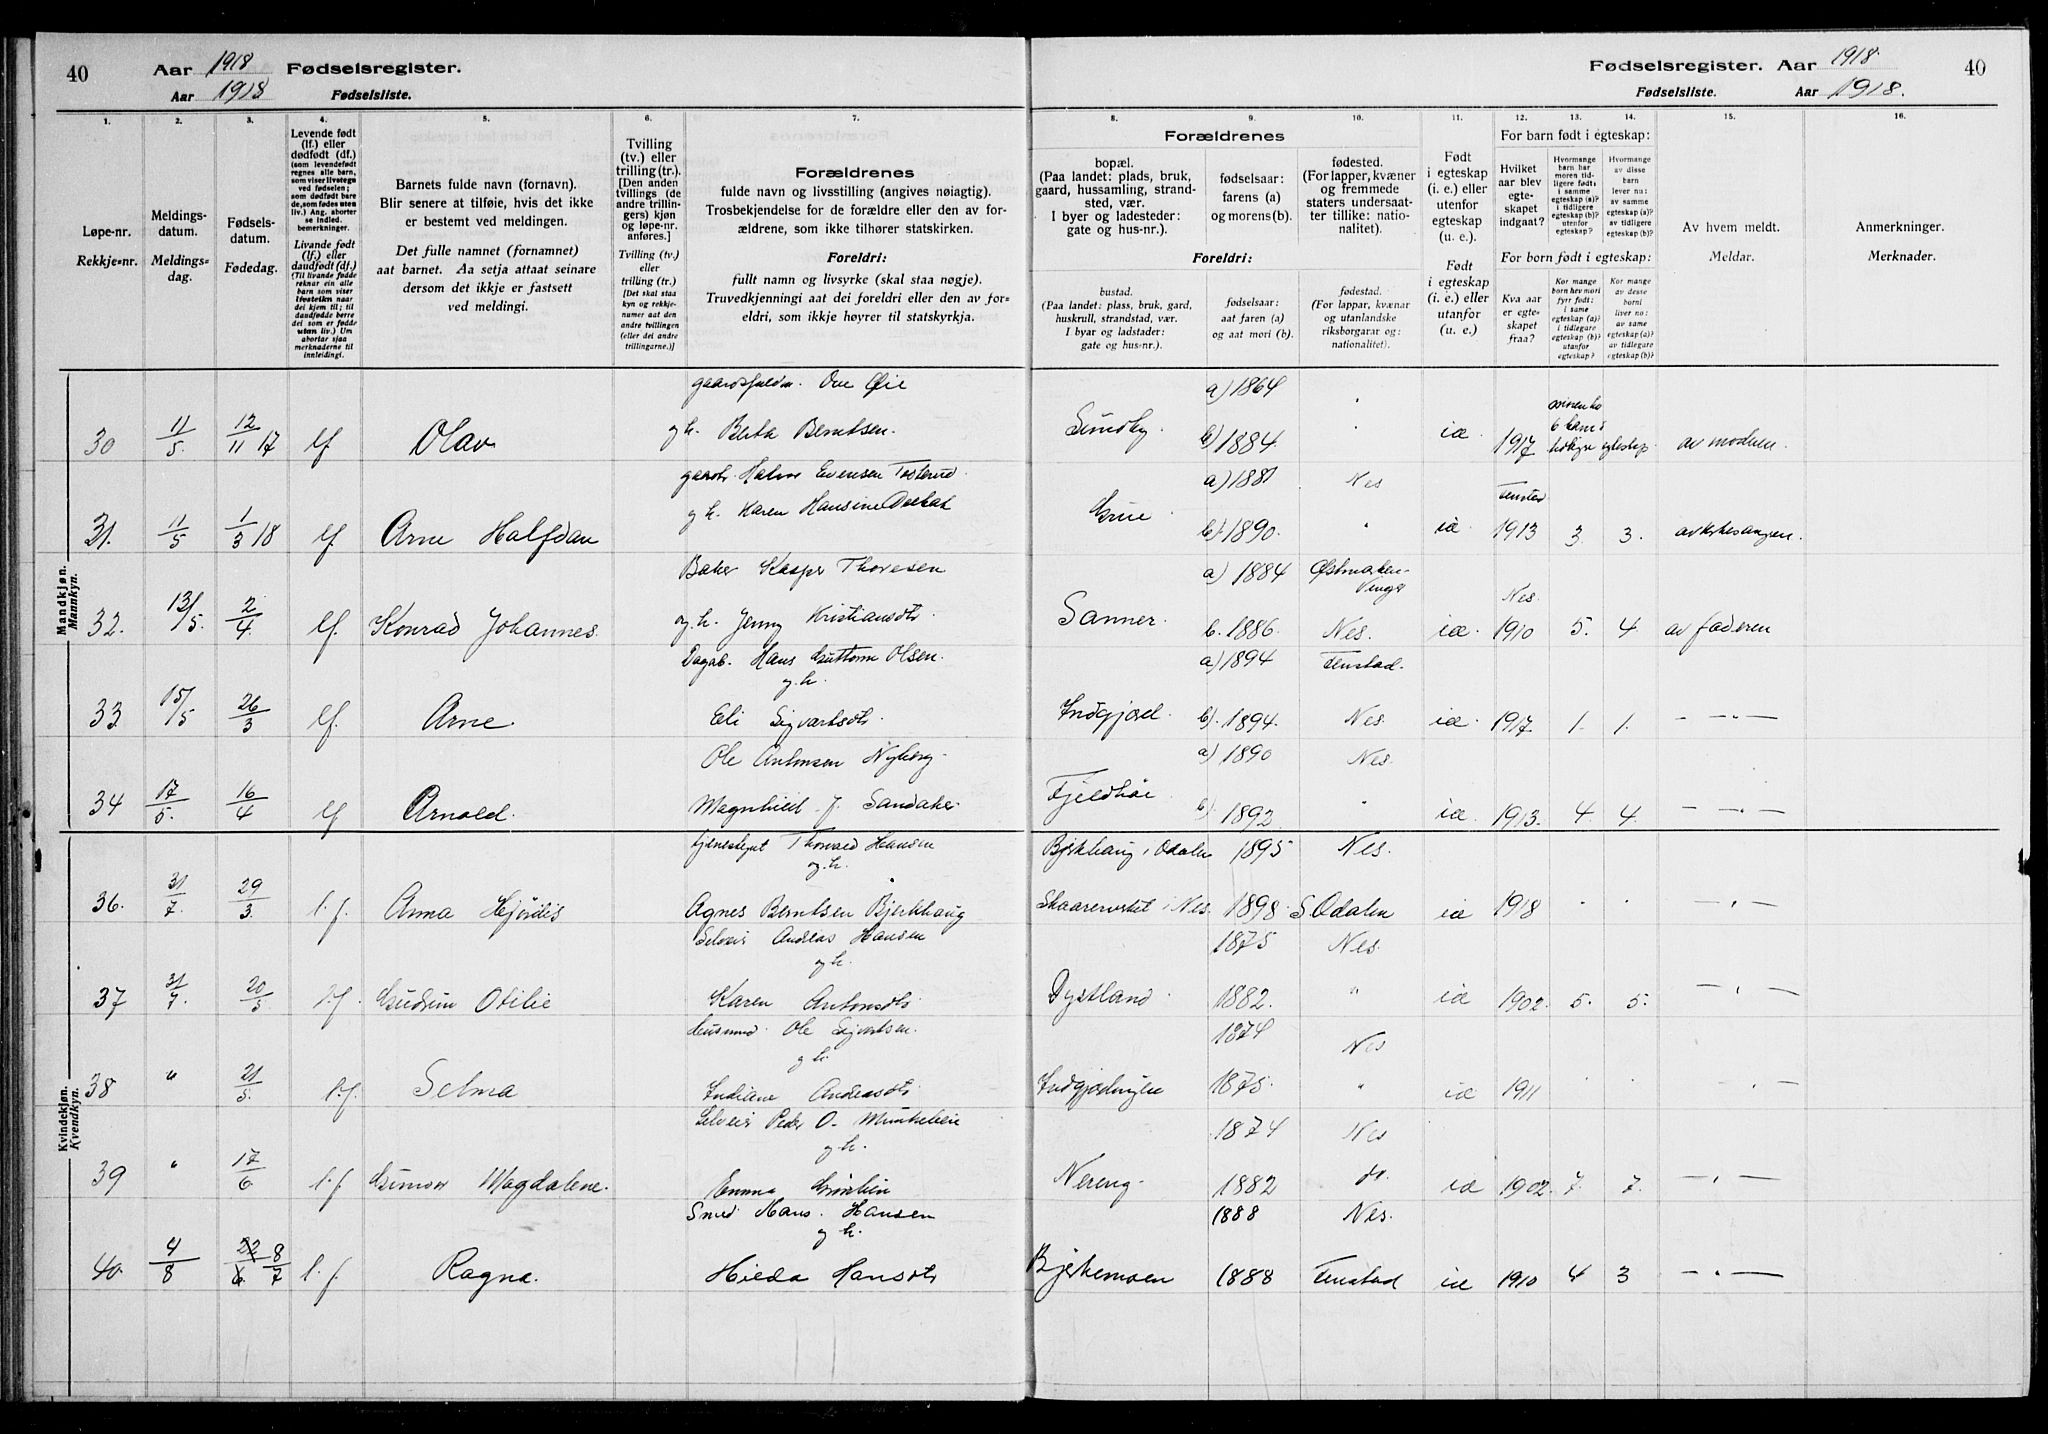 40 Aar 1918 Fødselsregister.
Aar 1918 Fødselsliste.
Fødselsregister. Aar 1918 40
Fødselsliste. Aar 1918.
1. 2. 3. 4. 5. 6. 7.
8. 9. 10. 11. 12. 13. 14. 15. 16.
Løpe-nr.
Rekkje-nr.
Meldings-
datum.
Meldings-
dag.
Fødsels-
datum.
Fødedag.
Levende født
(lf.) eller
dødfødt (df.)
(som levendefødt
regnes alle barn,
som viser livstegn
ved fødselen;
som dødfødt bare
de, som fødes uten
liv.) Ang. aborter
se indled.
bemerkninger.
Livande født
(lf.) eller
daudfødt (df.)
(Til livande fødde
reknar ein alle
barn som viser
livsteikn naar
dei kjem til; til
daudfødde berre
dei som er fødde
utan liv.) Um
abortar sjaa
merknaderne til
innleidingi.
Barnets fulde navn (fornavn).
Blir senere at tilføie, hvis det ikke
er bestemt ved meldingen.
Det fulle namnet (fornamnet)
aat barnet. Aa setja attaat seinare
dersom det ikkje er fastsett
ved meldingi.
Tvilling
(tv.) eller
trilling (tr.).
[Den anden
tvillings (de
andre trillin-
gers) kjøn
og løpe-nr.
anføres.]
Tvilling (tv.)
eller
trilling (tr.)
[Det skal staa
kyn og rekkje-
numer aat den
andre tvillingen
(eller dei andre
trillingarne.)]
Forældrenes
fulde navn og livsstilling (angives nøiagtig).
Trosbekjendelse for de forældre eller den av for-
ældrene, som ikke tilhører statskirken.
Foreldri:
fullt namn og livsyrke (skal staa nøgje).
Truvedkjenningi aat dei foreldri eller den av for-
eldri, som ikkje høyrer til statskyrkja.
Forældrenes
bopæl.
(Paa landet: plads, bruk,
gaard, hussamling, strand-
sted, vær.
I byer og ladesteder:
gate og hus-nr.).
fødselsaar:
farens (a)
og morens (b).
fødested.
(For lapper, kvæner
og fremmede
staters undersaat-
ter tillike: natio-
nalitet).
Foreldri:
bustad.
(Paa landet: plass, bruk, gard,
huskrull, strandstad, vær.
I byar og ladstader:
gate og hus-nr.).
fødselsaar:
aat faren (a)
og aat mori (b).
fødestad.
(For lappar, kvænar
og utanlandske
riksborgarar og:
nationalitet).
Født
i egteskap
(i. e.) eller
utenfor
egteskap
(u. e.).
Født
i egteskap
(i. e.) eller
utanfor
(u. e.)
For barn født i egteskap:
Hvilket
aar blev
egte-
skapet
indgaat?
Hvormange
barn har
moren tid-
ligere født:
i samme
egteskap (a)?
i tidligere
egteskap (b)?
utenfor
egteskap?
Hvormange
av disse
barn
lever nu:
av samme
egteskap (a)?
av tidligere
egteskap (b)?
For born født i egteskap:
Kva aar
er egte-
skapet
fraa?
Kor mange
born hev mori
fyrr født:
i same
egteskap (a)?
i tidlegare
egteskap (b)?
utanfor
egteskap?
Kor mange
av desse
borni
liver no:
av same
egteskap (a)?
av tidlegare
egteskap (b)?
Av hvem meldt.
Meldar.
Anmerkninger.
Merknader.
Mandkjøn.
Mannkyn.
Ove Øie a) 1864
30 11/5. 12/11 17 lf Olav g.h. Berta Berntsen. Sundby b) 1884. ie 1917 av moderen.
Halvor Evensen a) 1881 Nes
31. 11/5 1/3 18 lf. Arne Halfdan g.h. Karen Hansine Grue b) 1890. " ie 1913 3. 3.
Baker Kasper Thoresen a) 1884 Østmarken Vinger
32. 13/5. 2/4. lf. Konrad Johannes. og h. Jenny Kristiansdtr. Sanner. b. 1886. Nes. ie. Nes. 1910 5. 4. av faderen
Dagab. Hans Guttorm Olsen. a) 1894 Fenstad.
g.h.
33 15/5 26/3 lf. Arne. Eli Sigvartsdtr. Indgjærd. b). 1894. Nes. ie 1917. 1. 1. — " —
Ole Antonsen Nyborg. a) 1890 Nes.
34 17/5. 16/4 lf Arnold. Magnhild J. Sandaker. Fjeldhøi b). 1892. " ie. 1913. 4. 4. — " —
Kvindekjøn.
Kvendkyn.
Thorvald Hansen Bjerkhaug i Odalen 1895 Nes.
og h.
36. 31/7. 29/3. l.f. Anna Hjørdis Agnes Berntsen Bjerkhaug i Nes. 1898. S Odalen ie 1918 " " — " —
Selveier Andreas Hansen 1875 Nes.
og h.
37 31/7. 20/5 l.f. Gudrun Otilie Karen Antonsdtr. Dystland 1882. " ie 1902. 5. 5. — " —
Husmand Ole Sigvartsen. 1874 Nes
g h.
38 " 21/5. l.f. Selma Indiane Andreasdtr. 1875. " ie 1911
Selveier Peder O. Munkebien 1874 Nes
g h.
39 " 17/6 l.f. Gunvor Magdalene. Emma Nereng. 1882 do. ie 1902. 7. 7. — " —
Smed Hans Hansen 1888 Nes.
og h.
40. 4/8 22/6 8/7 l.f. Ragna. Hilda Hansdtr Bjerkemoen 1888 Fenstad ie 1910 4 3 — " —